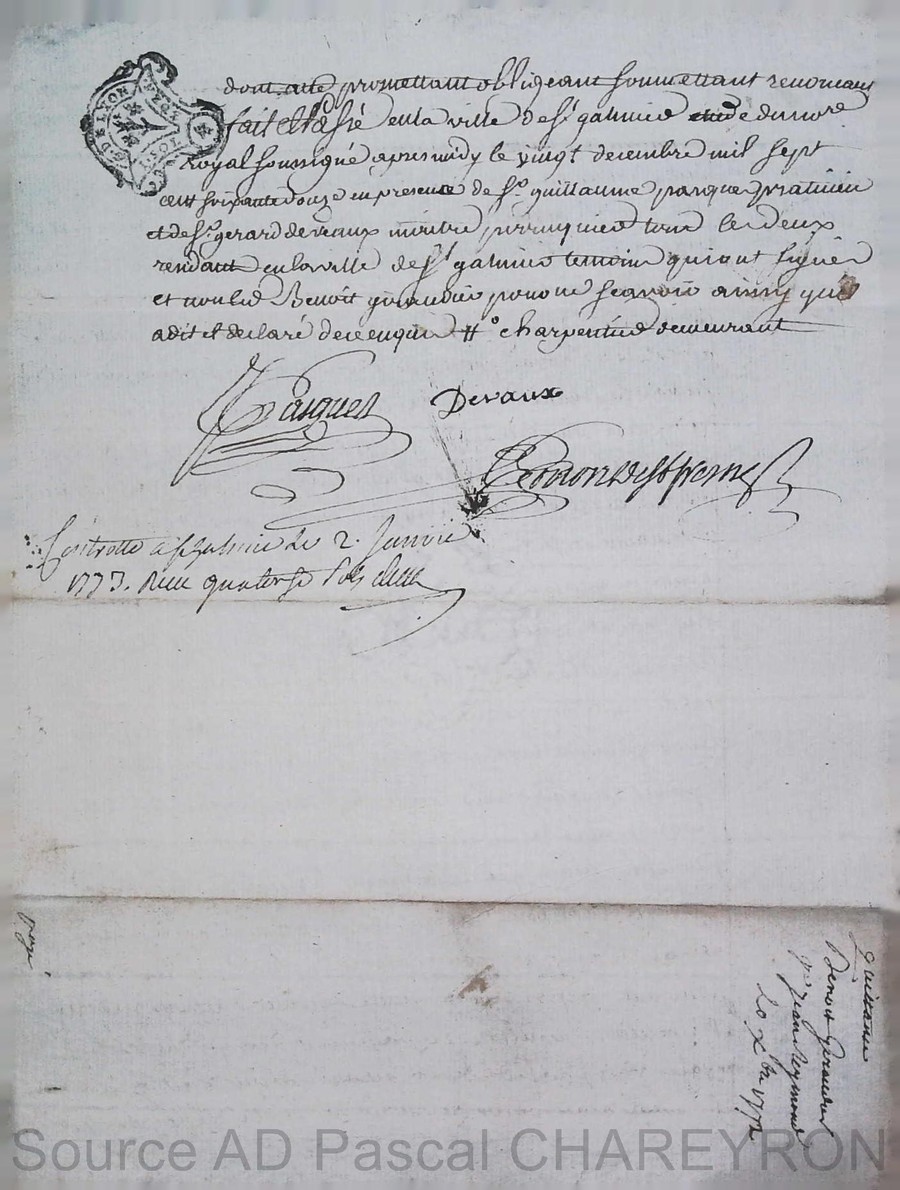 GEN. DE LYON
dont acte promettant obligeant soumettant renonceant
fait et passé en la ville de St galmier etude du nore
Royal soussigné apres midy le vingt decembre mil sept
cent soixante douze en presence de sr guillaume pasquet praticien
et de sr gerard devaux maitre perruquier tous les deux
residant en la ville de St galmier temoins qui ont signés
et non led Benoit giraudier pour ne scavoir ainsy quil
a dit et declaré de ce enquis # charpentier demeurant
Pasquet Devaux
Controlle a st galmier le 2. Janvier
1773. Recu quatorze sols
payé
quittance
Benoit giraudier
pr Jean Reymond
20 Xbre 1772
Source AD Pascal CHAREYRON